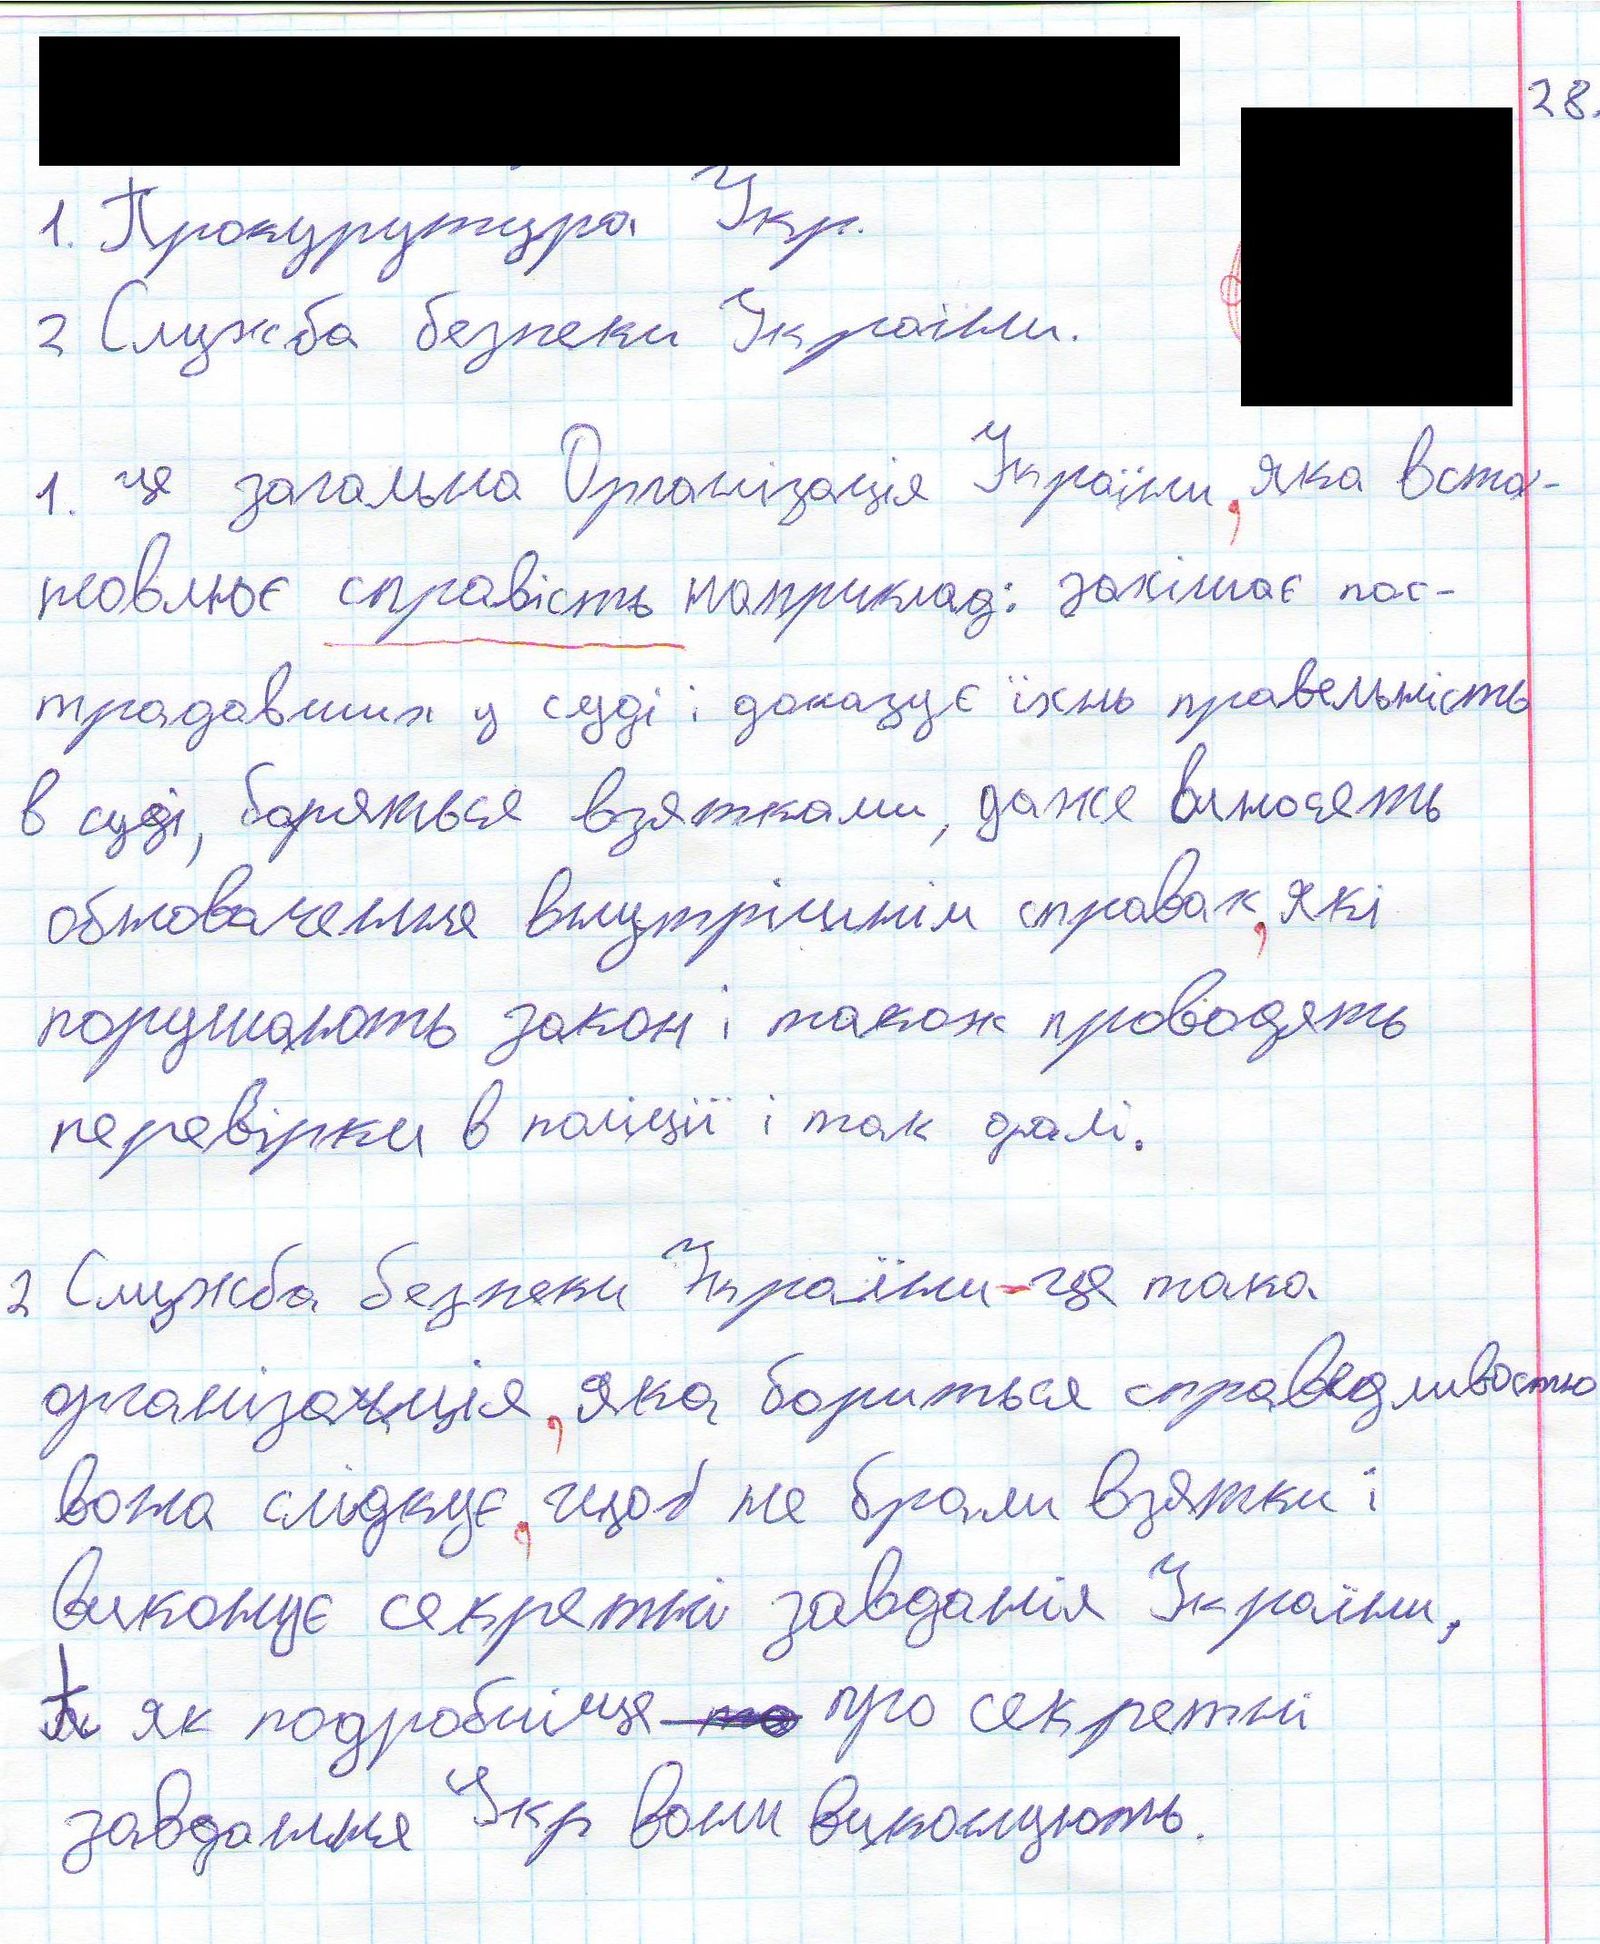 28.
1. Прокурутура Укр.
2 Служба безпеки України.
1. це загальна Організація України, яка вста-
новлює справість наприклад: захішає пос-
традавших у суді і доказує їхнь правельність
в суді, боряться взятками, даже виносять
обновачення внутрішнім справах, які
порушають закон і також проводять
перевірки в поліції і так далі.
2 Служба безпеки України - це така
організація, яка бориться справедливостю
вона слідкує, щоб не брали взятки і
виконує секретні завданія України,
як подробніще про секретні
завдання Укр вони виконують.